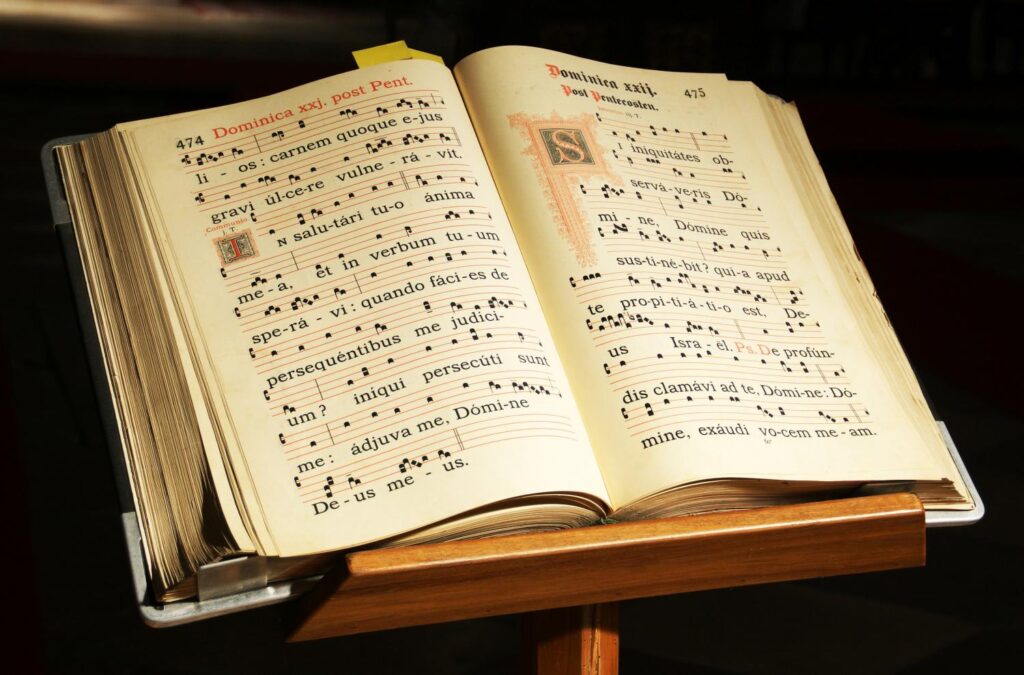 474 Dominica xxj. post Pent.
li - os: carnem quoque e-jus
gravi úl-ce-re vulne - rá - vit.
Communio
j. T.
I N salu-tári tu-o ánima
me - a, et in verbum tu-um
spe-rá - vi: quando fáci-es de
persequéntibus me judíci-
um? iníqui persecúti sunt
me: ádjuva me, Dómi-ne
De-us me - us.
Dominica xxij. 475
Post Pentecosten.
iij. T.
S I iniquitátes ob-
servá-ve-ris Dó-
mi - ne, Dómine quis
sus-ti-né-bit? qui-a apud
te pro-pi-ti-á-ti-o est, De-
us Isra - ël. Ps. De profún-
dis clamávi ad te, Dómi-ne: Dó-
mine, exáudi vo-cem me-am.